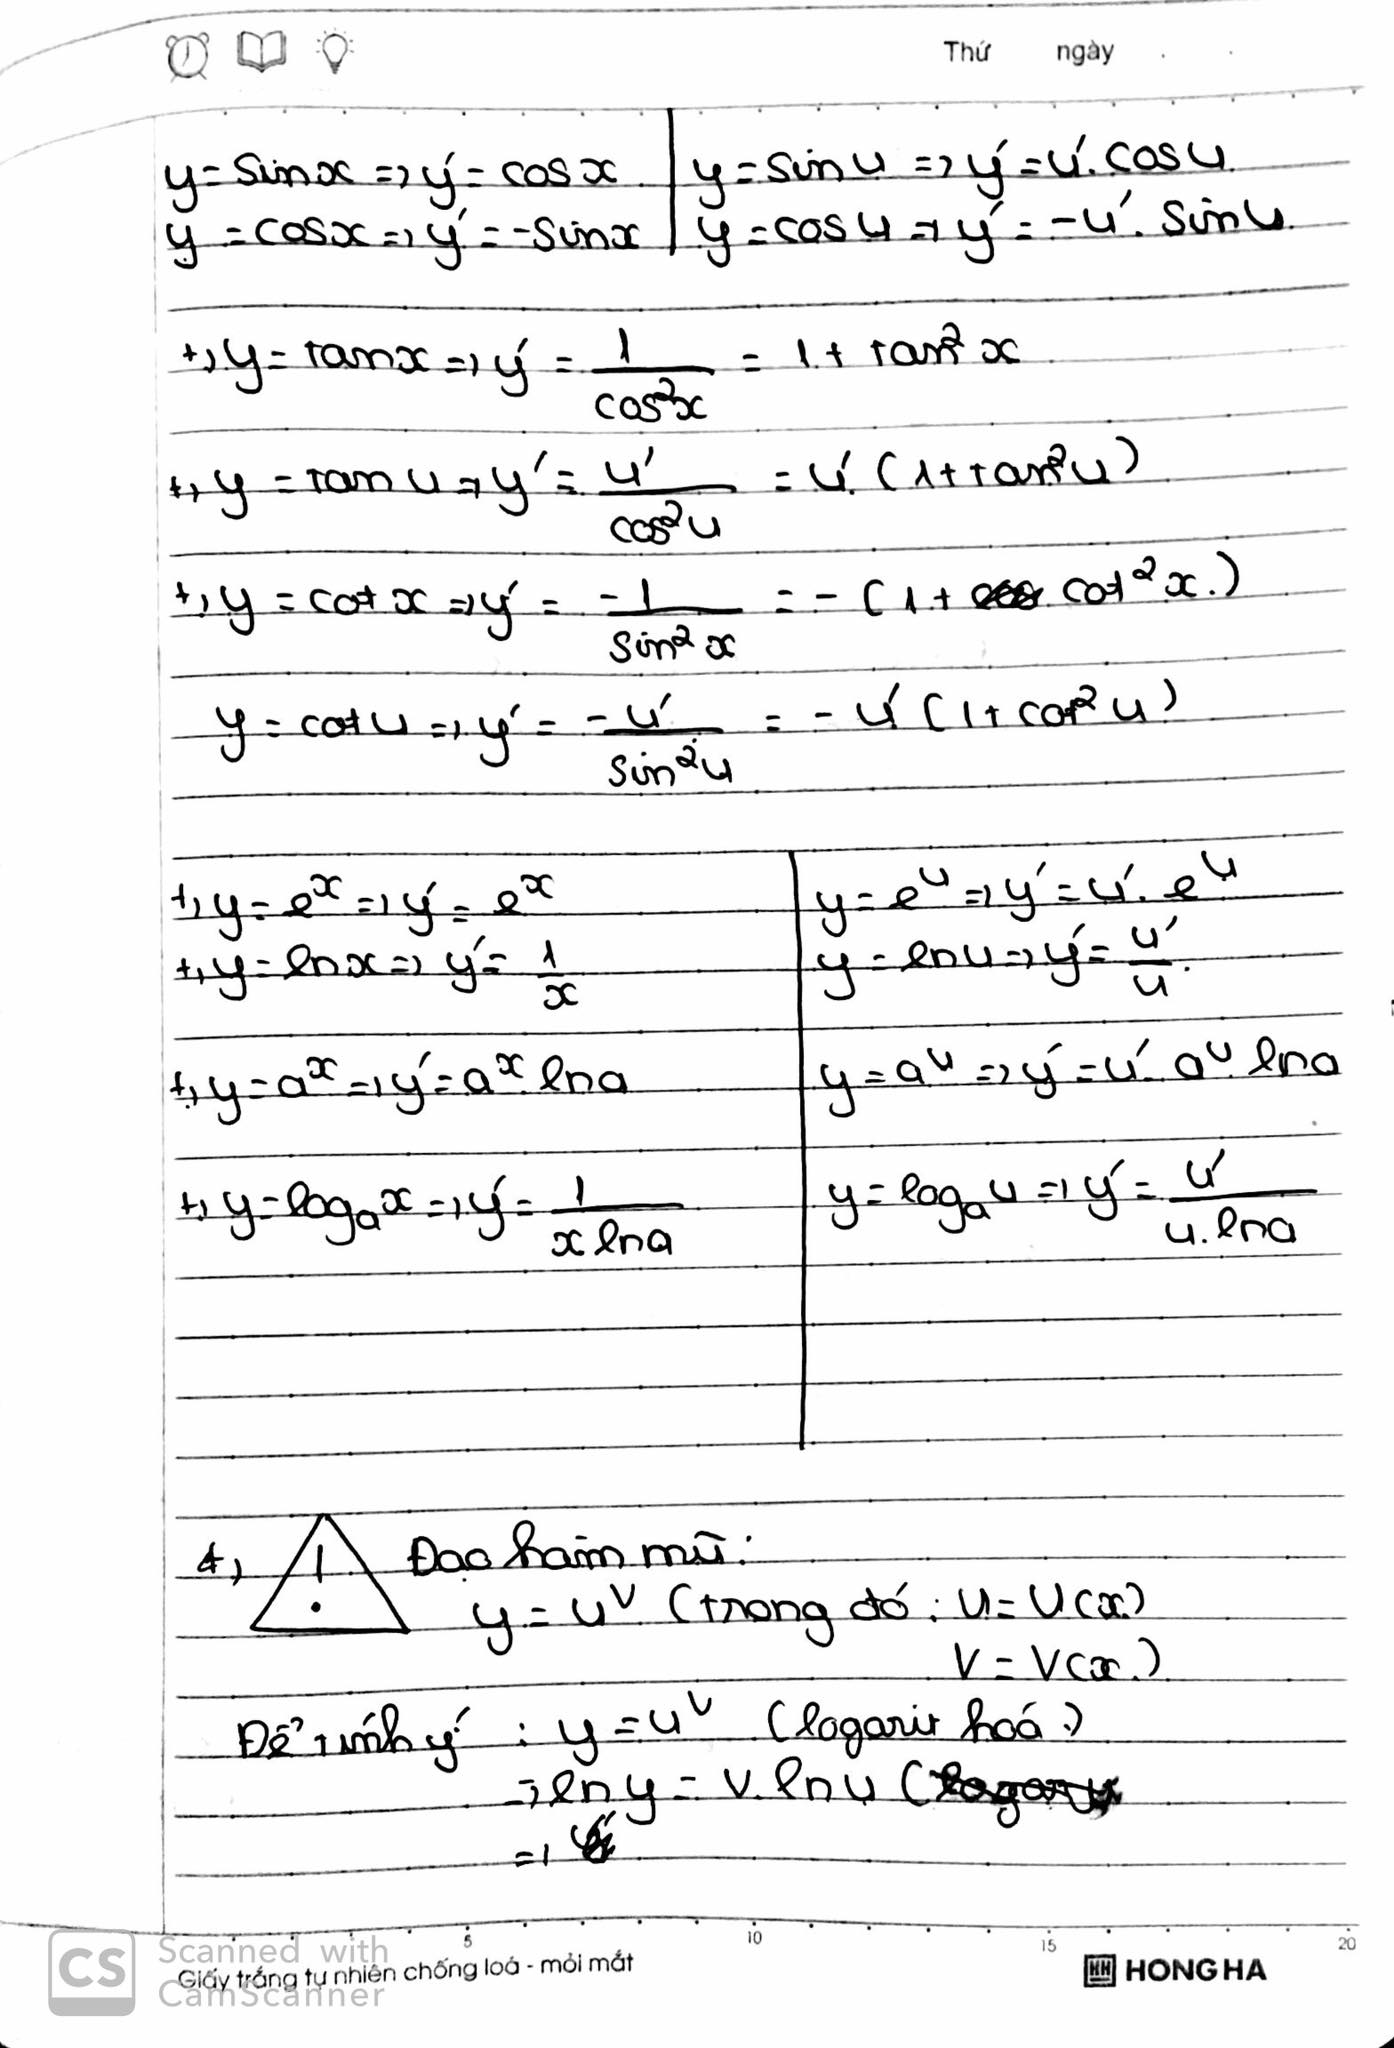 Thứ ngày
y = sinx => y' = cosx | y = sinu => y' = u'. cosu
y = cosx => y' = -sinx | y = cosu => y' = -u'. sinu.
+, y = tanx => y' = 1/cos²x = 1 + tan²x
+, y = tanu => y' = u'/cos²u = u'. (1 + tan²u)
+, y = cotx => y' = -1/sin²x = - (1 + cot²x.)
y = cotu => y' = -u'/sin²u = - u' (1 + cot²u)
+, y = e^x => y' = e^x | y = e^u => y' = u'. e^u
+, y = lnx => y' = 1/x | y = lnu => y' = u'/u.
+, y = a^x => y' = a^x lna | y = a^u => y' = u'. a^u lna
+, y = logₐx => y' = 1/(x lna) | y = logₐu => y' = u'/(u.lna)
+, ! Đạo hàm mũ:
y = u^v (trong đó: u = u(x)
v = v(x.)
Để tính y' : y = u^v (logarit hoá)
=> lny = v.lnu (
=>
5 10 15 20
CS Scanned with
CamScanner
Giấy trắng tự nhiên chống loá - mỏi mắt
HH HONG HA